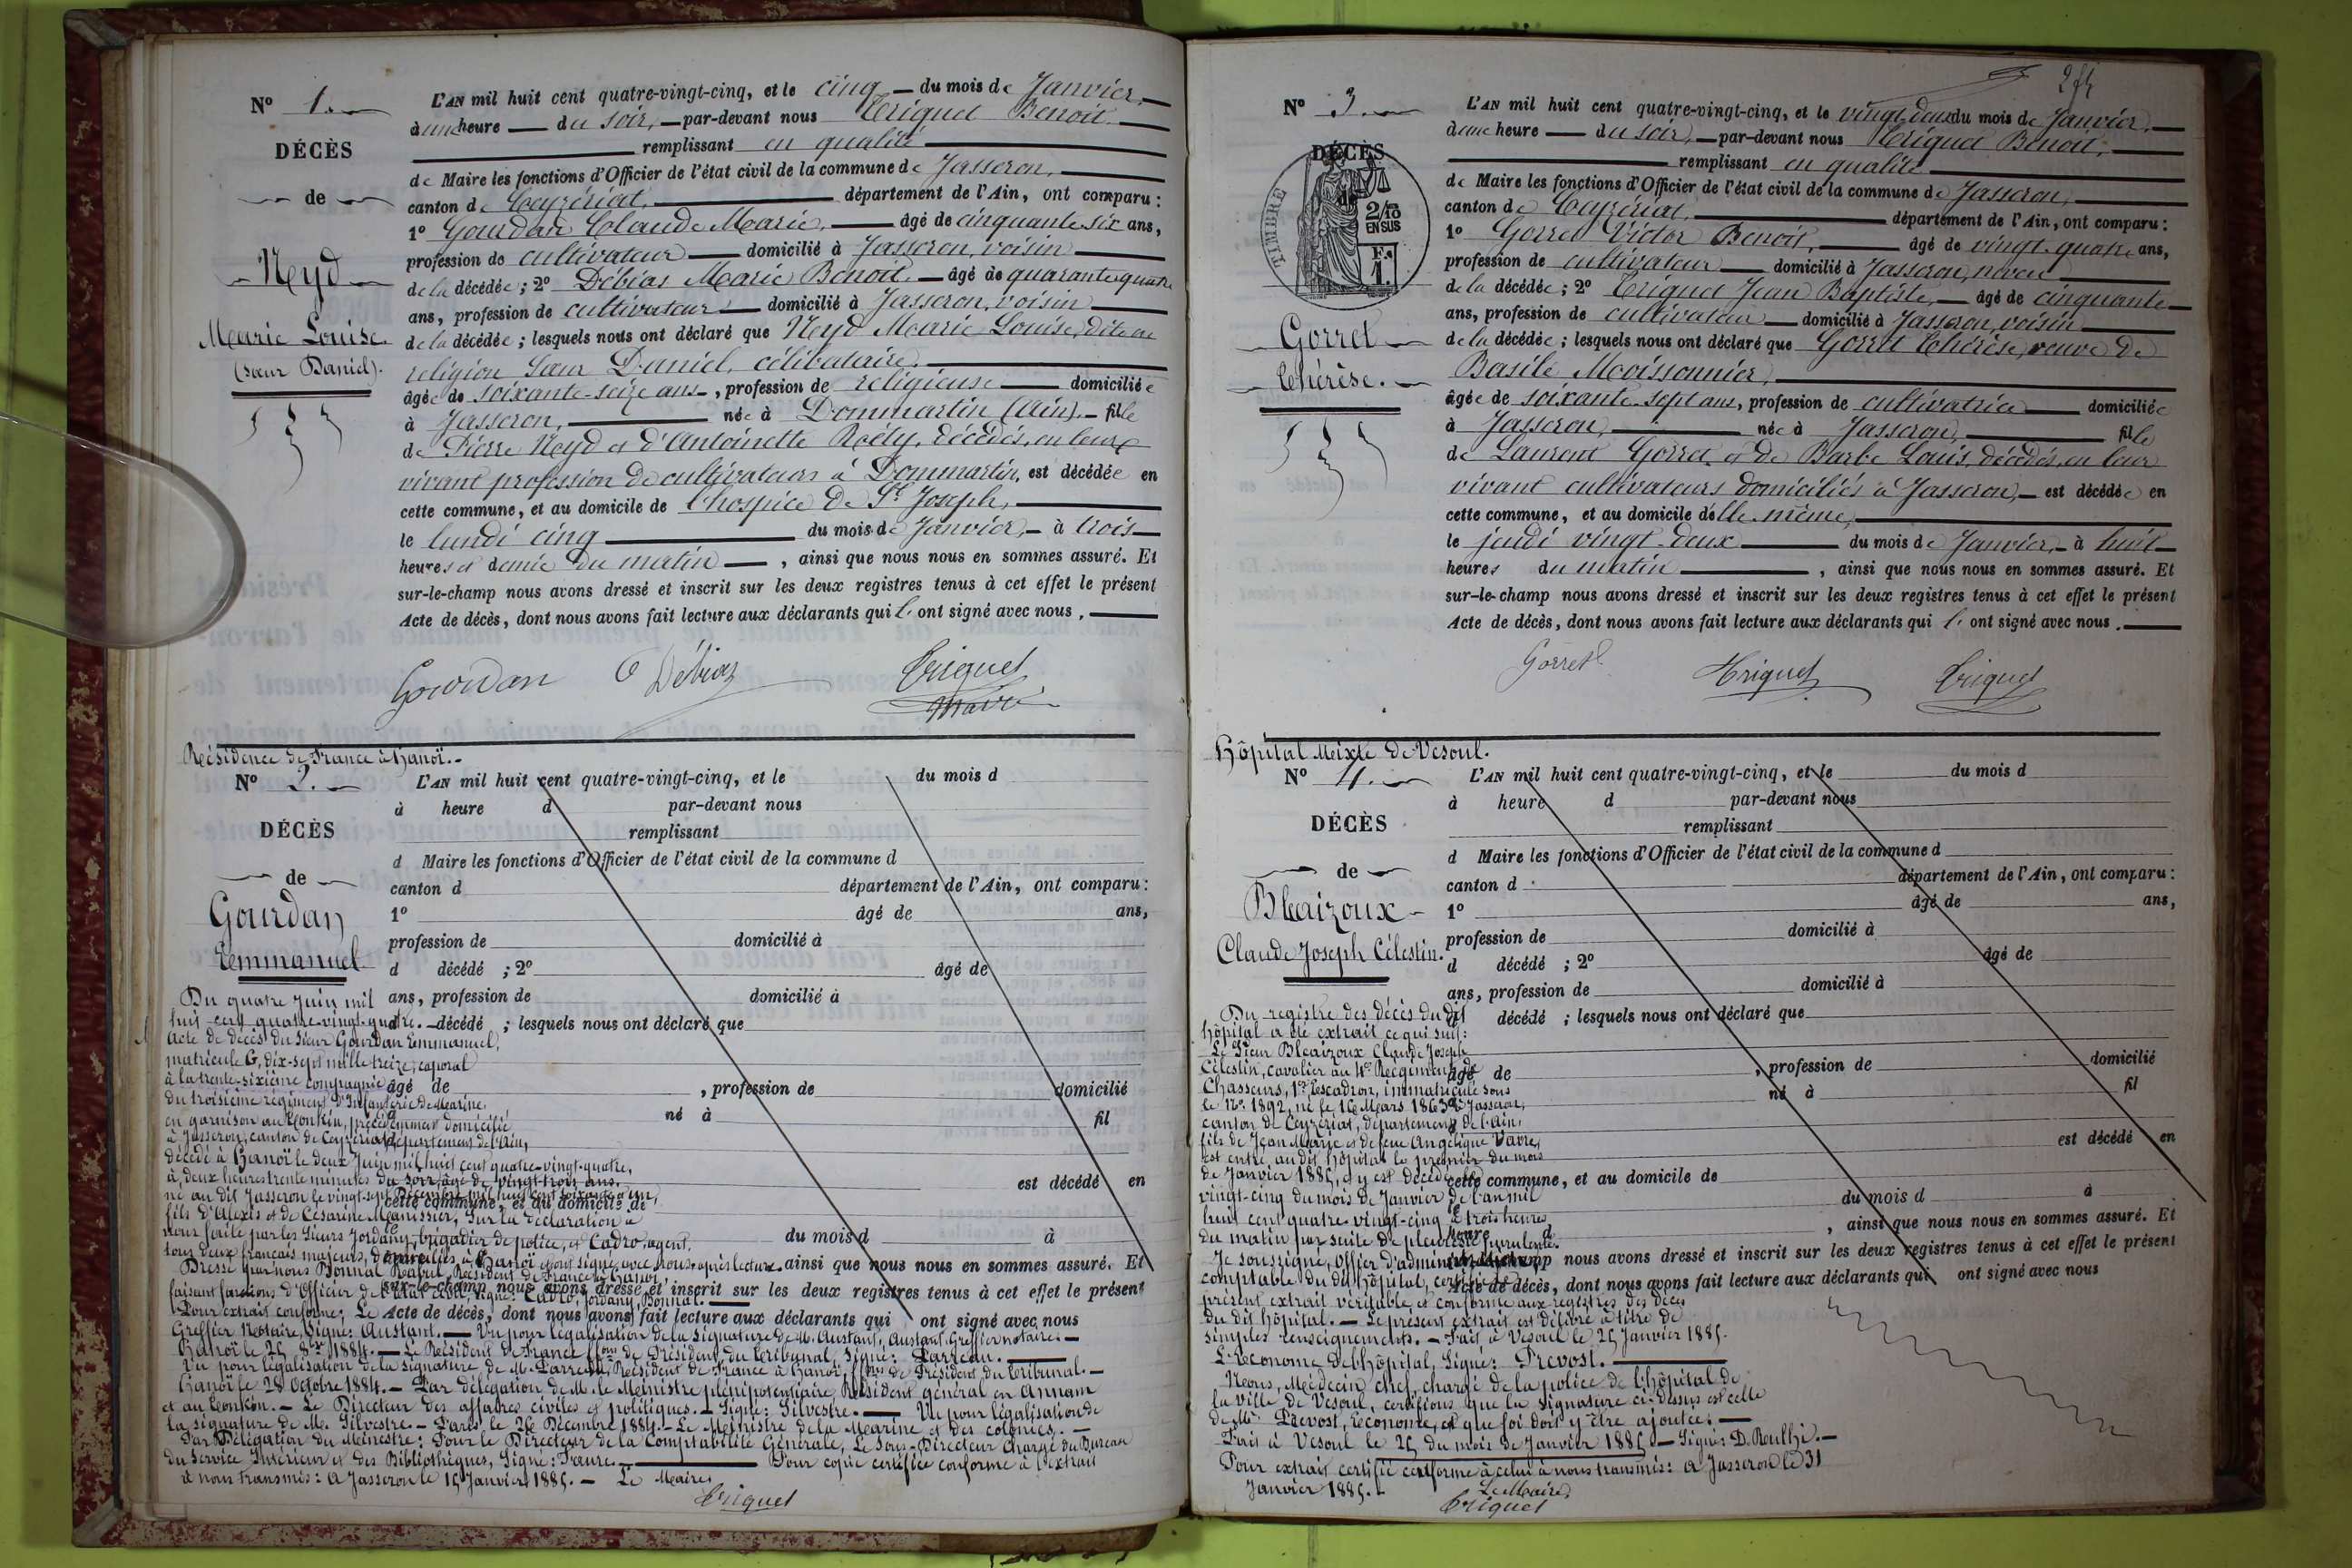 N° 1.
DÉCÈS
de
Neyd
Marie Louise.
(sœur Daniel).
L'AN mil huit cent quatre-vingt-cinq, et le cinq du mois de Janvier,
à une heure du soir, par-devant nous Triquet Benoit
remplissant en qualité
de Maire les fonctions d'Officier de l'état civil de la commune de Jasseron,
canton de Ceyzériat, département de l'Ain, ont comparu :
1° Gourdan Claude Marie, âgé de cinquante-six ans,
profession de cultivateur domicilié à Jasseron, voisin
de la décédée ; 2° Débias Marie Benoit, âgé de quarante-quatre
ans, profession de cultivateur domicilié à Jasseron, voisin
de la décédée ; lesquels nous ont déclaré que Neyd Marie Louise, dite en
religion Sœur Daniel, célibataire,
âgée de soixante-seize ans, profession de religieuse domiciliée
à Jasseron, née à Dommartin (Ain), fille
de Pierre Neyd et d'Antoinette Roély, décédés, en leur
vivant profession de cultivateurs à Dommartin, est décédée en
cette commune, et au domicile de l'hospice de St Joseph,
le lundi cinq du mois de Janvier, à trois
heures et demie du matin, ainsi que nous nous en sommes assuré. Et
sur-le-champ nous avons dressé et inscrit sur les deux registres tenus à cet effet le présent
Acte de décès, dont nous avons fait lecture aux déclarants qui l' ont signé avec nous.
Gourdan Débias Triquet
Maire
Résidence de France à Hanoï.
N° 2.
DÉCÈS
de
Gourdan
Emmanuel
L'AN mil huit cent quatre-vingt-cinq, et le du mois d
à heure d par-devant nous
remplissant
d Maire les fonctions d'Officier de l'état civil de la commune d
canton d département de l'Ain, ont comparu :
1° âgé de ans,
profession de domicilié à
d décédé ; 2° âgé de
ans, profession de domicilié à
d décédé ; lesquels nous ont déclaré que
âgé de , profession de domicilié
à né à fil
est décédé en
cette commune, et au domicile de
du mois d à
ainsi que nous nous en sommes assuré. Et
sur-le-champ nous avons dressé et inscrit sur les deux registres tenus à cet effet le présent
Acte de décès, dont nous avons fait lecture aux déclarants qui ont signé avec nous
Du quatre Juin mil
huit cent quatre-vingt-quatre.
Acte de décès du Sieur Gourdan Emmanuel,
matricule G, dix-sept mille treize, caporal
à la trente-sixième compagnie
du troisième régiment d'Infanterie de Marine,
en garnison au Tonkin, précédemment domicilié
à Jasseron, canton de Ceyzériat, département de l'Ain,
décédé à Hanoï le deux Juin mil huit cent quatre-vingt-quatre,
à deux heures trente minutes du soir, âgé de vingt-trois ans,
né au dit Jasseron le vingt-sept Décembre mil huit cent soixante et un,
fils d'Alexis et de Césarine Manissier, Sur la déclaration à
nous faite par les Sieurs Jordany, brigadier de police, et Cadro, agent,
tous deux français majeurs, domiciliés à Hanoï et ont signé avec nous après lecture
Dressé par nous Bonnal Raoul, Résident de France à Hanoï,
faisant fonctions d'Officier de l'Etat civil, signé : Cadro, Jordany, Bonnal.
Pour extrait conforme, Le
Greffier Notaire, Signé : Austant. Vu pour légalisation de la signature de M. Austant, Greffier notaire.
Hanoï le 25 8bre 1884. Le Résident de France ffons de Président du Tribunal, Signé : Parreau.
Vu pour légalisation de la signature de M. Parreau, Résident de France à Hanoï, ffons de Président du Tribunal.
Hanoï le 28 Octobre 1884. Par délégation de M. le Ministre plénipotentiaire, Résident général en Annam
et au Tonkin. Le Directeur des affaires civiles et politiques. Signé : Silvestre. Vu pour légalisation de
la signature de M. Silvestre. Paris le 26 Décembre 1884. Le Ministre de la Marine et des colonies.
Par Délégation du Ministre : Pour le Directeur de la Comptabilité Générale, Le Sous-Directeur Chargé du Bureau
du Service Intérieur et des Bibliothèques, Signé : Faure. Pour copie certifiée conforme à l'extrait
à nous transmis : à Jasseron le 15 Janvier 1885. Le Maire,
Triquet
N° 3.
DÉCÈS
de
TIMBRE
2/10
EN SUS
F.
1.
Gorret
Thérèse.
L'AN mil huit cent quatre-vingt-cinq, et le vingt-deux du mois de Janvier,
à une heure du soir, par-devant nous Triquet Benoit,
remplissant en qualité
de Maire les fonctions d'Officier de l'état civil de la commune de Jasseron,
canton de Ceyzériat, département de l'Ain, ont comparu :
1° Gorret Victor Benoit, âgé de vingt-quatre ans,
profession de cultivateur domicilié à Jasseron, neveu
de la décédée ; 2° Triquet Jean Baptiste, âgé de cinquante
ans, profession de cultivateur domicilié à Jasseron, voisin
de la décédée ; lesquels nous ont déclaré que Gorret Thérèse, veuve de
Basile Moissonnier,
âgée de soixante-sept ans, profession de cultivatrice domiciliée
à Jasseron, née à Jasseron, fille
de Laurent Gorret et de Barbe Louis, décédés, en leur
vivant cultivateurs domiciliés à Jasseron, est décédée en
cette commune, et au domicile d'elle même,
le jeudi vingt-deux du mois de Janvier, à huit
heures du matin, ainsi que nous nous en sommes assuré. Et
sur-le-champ nous avons dressé et inscrit sur les deux registres tenus à cet effet le présent
Acte de décès, dont nous avons fait lecture aux déclarants qui l' ont signé avec nous.
Gorret Triquet Triquet
Hôpital Mixte de Vesoul.
N° 4.
DÉCÈS
de
Bleaizoux
Claude Joseph Célestin.
L'AN mil huit cent quatre-vingt-cinq, et le du mois d
à heure d par-devant nous
remplissant
d Maire les fonctions d'Officier de l'état civil de la commune d
canton d département de l'Ain, ont comparu :
1° âgé de ans,
profession de domicilié à
d décédé ; 2° âgé de
ans, profession de domicilié à
d décédé ; lesquels nous ont déclaré que
âgé de , profession de domicilié
né à fil
est décédé en
cette commune, et au domicile de
du mois d à
heure d , ainsi que nous nous en sommes assuré. Et
sur-le-champ nous avons dressé et inscrit sur les deux registres tenus à cet effet le présent
Acte de décès, dont nous avons fait lecture aux déclarants qui ont signé avec nous
Du registre des décès du dit
hôpital a été extrait ce qui suit :
Le Sieur Bleaizoux Claude Joseph
Célestin, cavalier au 4e Régiment de
Chasseurs, 1er Escadron, immatriculé sous
le No 1892, né le 16 Mars 1863 à Jasseron,
canton de Ceyzériat, département de l'Ain,
fils de Jean Marie et de feue Angélique Vavre,
est entré au dit hôpital le premier du mois
de Janvier 1885, et y est décédé le
vingt-cinq du mois de Janvier de l'an mil
huit cent quatre-vingt-cinq à trois heures
du matin par suite de pleurésie purulente.
Je soussigné, Officier d'administration
comptable du dit hôpital, certifie le
présent extrait véritable et conforme aux registres des décès
du dit hôpital. Le présent extrait est délivré à titre de
simples renseignements. Fait à Vesoul le 25 Janvier 1885.
L'Econome de l'hôpital, Signé : Prevost.
Nous, Médecin chef, chargé de la police de l'hôpital de
la ville de Vesoul, certifions que la signature ci-dessus est celle
de Mr. Prevost, Econome, et que foi doit y être ajoutée.
Fait à Vesoul le 25 du mois de Janvier 1885. Signé : D. Reulhi.
Pour extrait certifié conforme à celui à nous transmis : à Jasseron le 31
Janvier 1885.
Le Maire,
Triquet